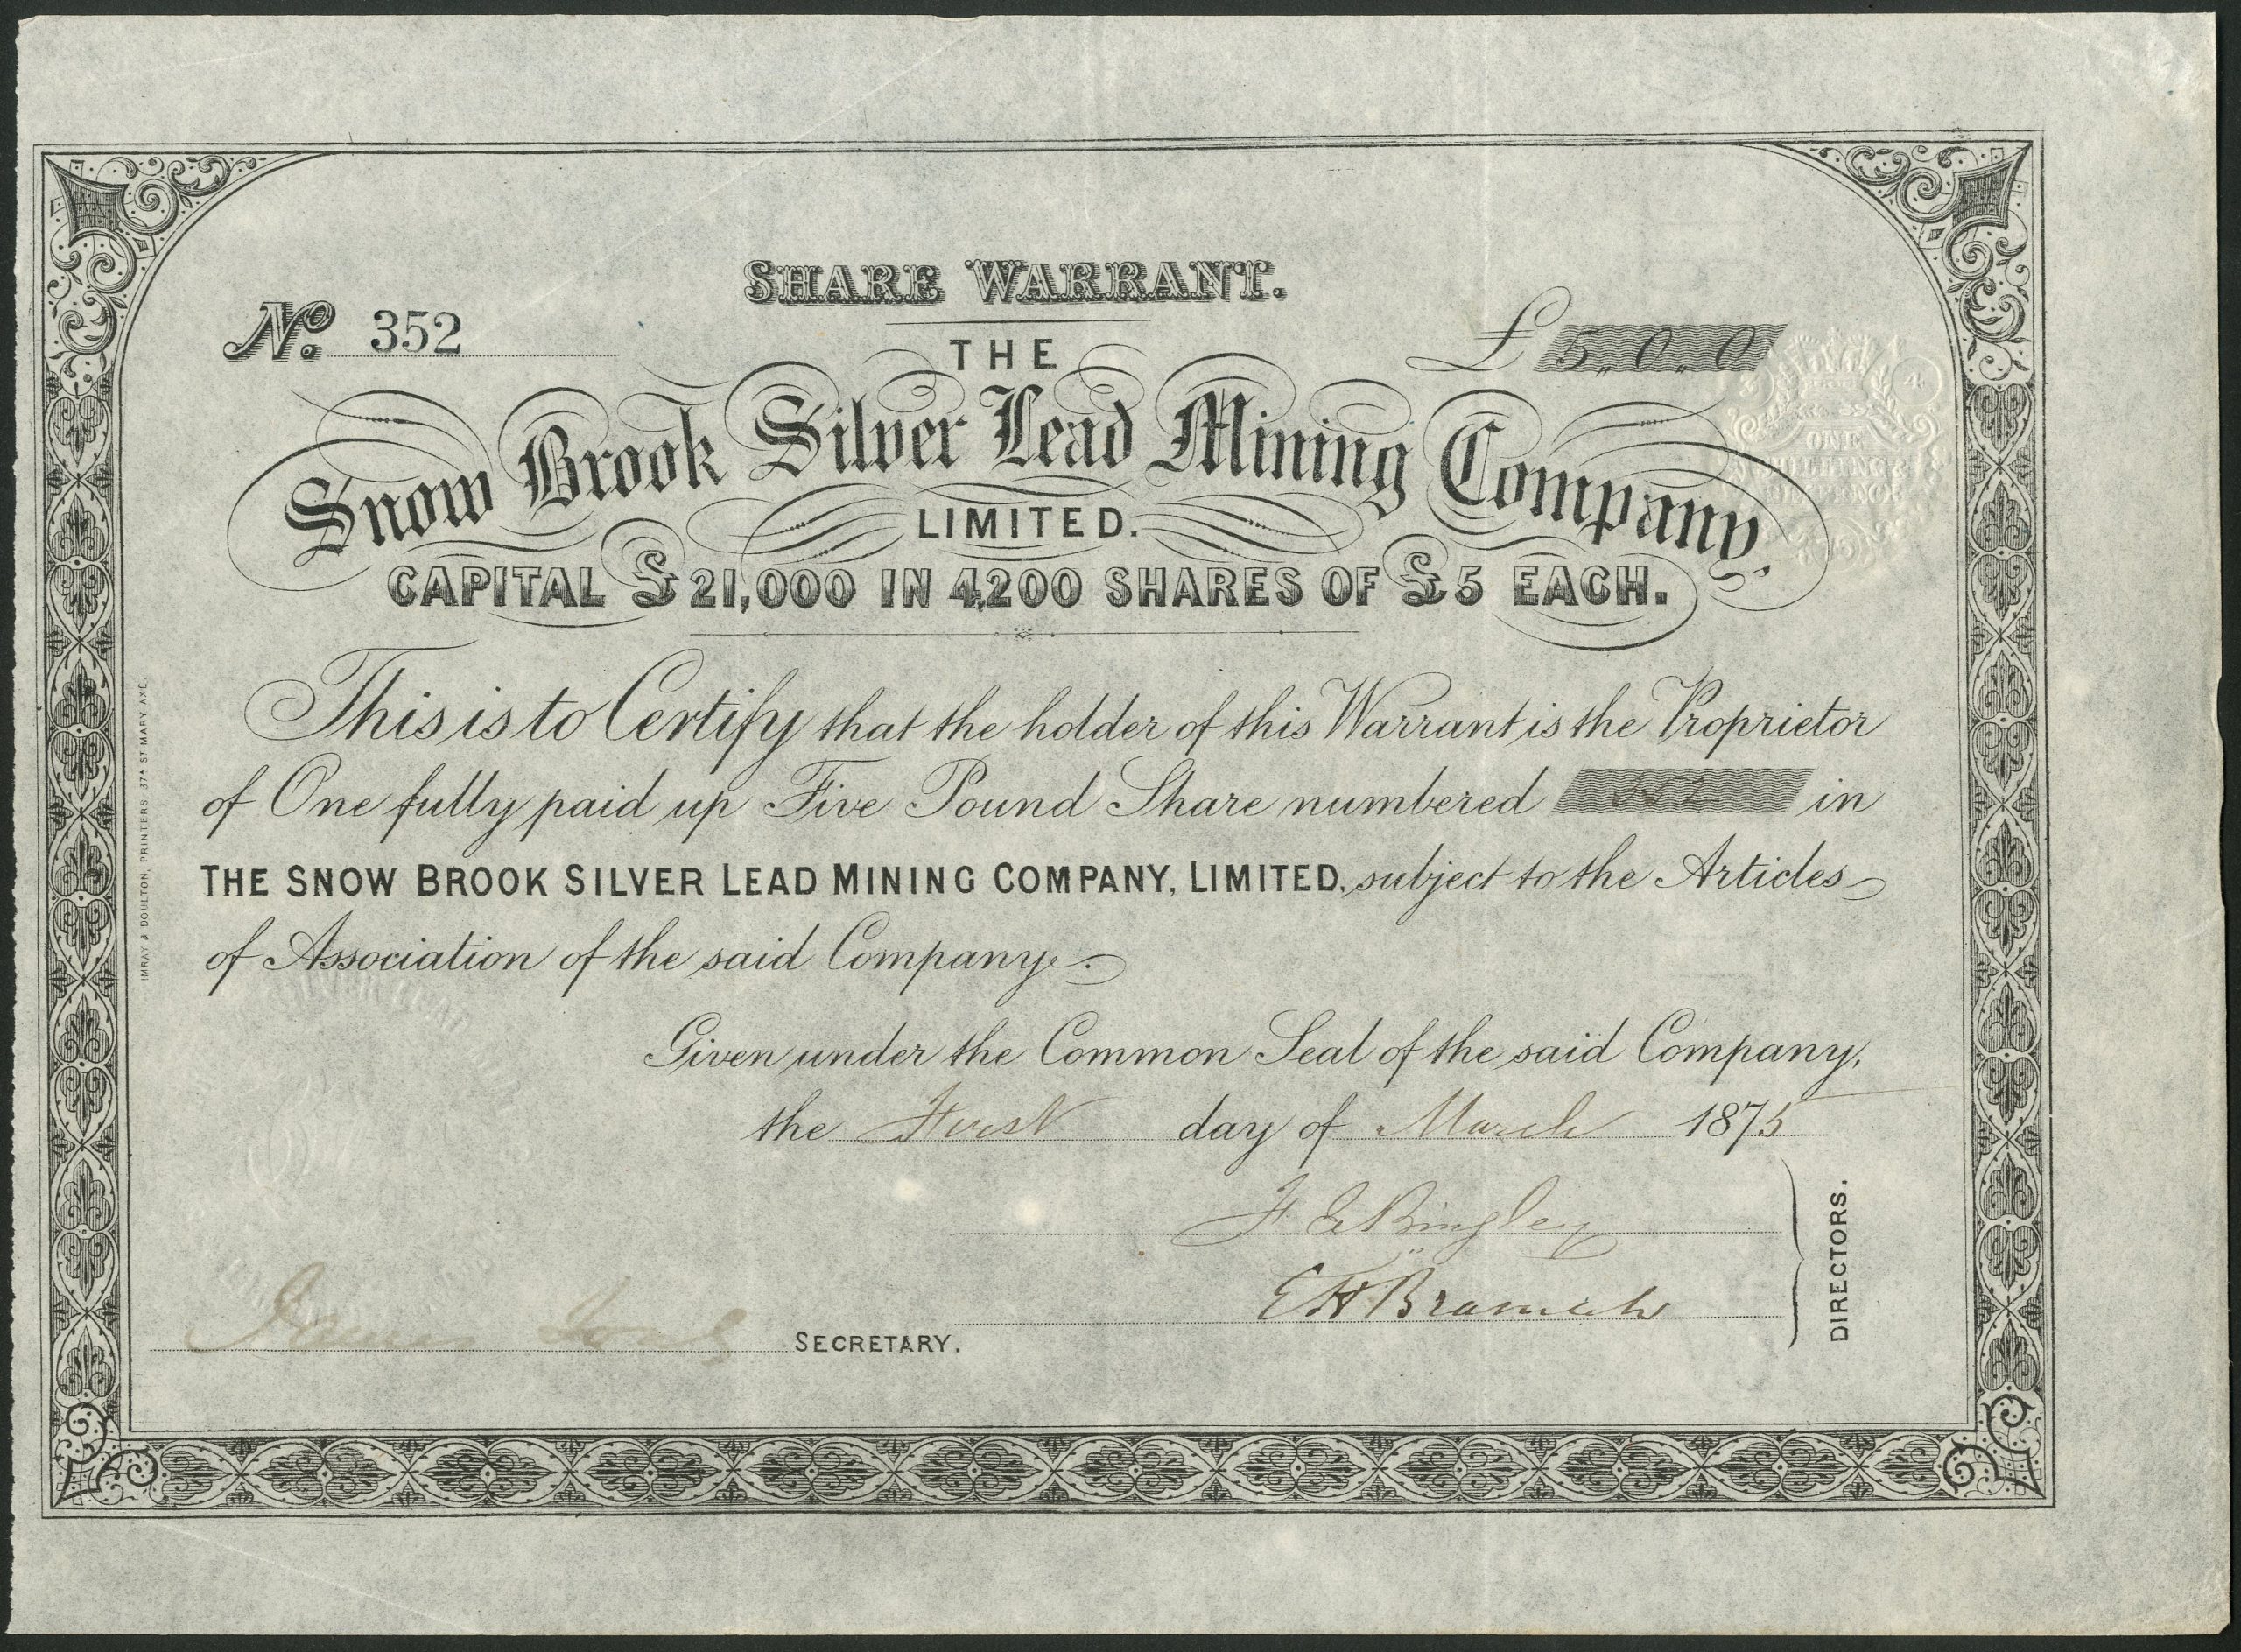 SHARE WARRANT.
No. 352
£ 5,, 0,, 0
THE
Snow Brook Silver Lead Mining Company,
LIMITED.
CAPITAL £21,000 IN 4,200 SHARES OF £5 EACH.
ONE
SHILLING &
SIXPENCE
This is to Certify that the holder of this Warrant is the Proprietor
of One fully paid up Five Pound Share numbered 352 in
THE SNOW BROOK SILVER LEAD MINING COMPANY, LIMITED, subject to the Articles
of Association of the said Company.
SILVER LEAD
Given under the Common Seal of the said Company,
the First day of March 1875
F E Bingley
E H Bramich
DIRECTORS.
James
SECRETARY.
IMRAY & DOULTON, PRINTERS, 37A ST MARY AXE.